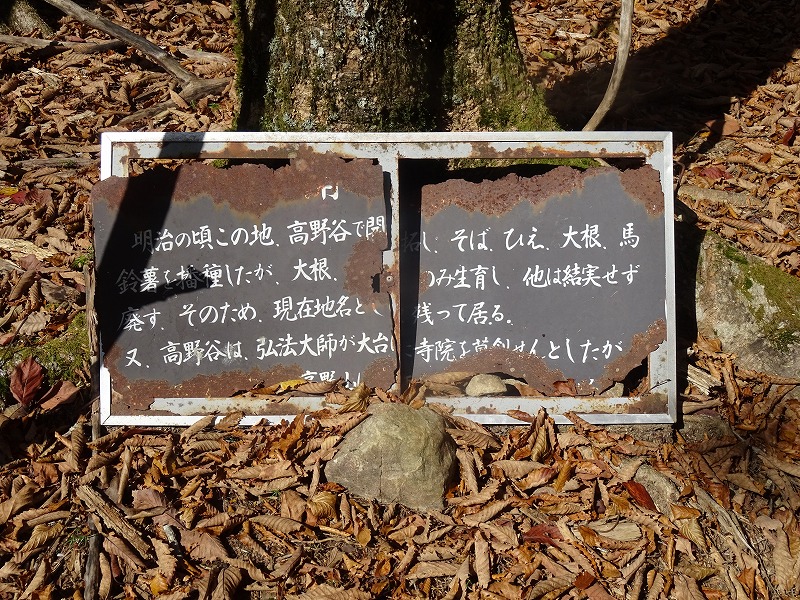 明治の頃この地、高野谷で開拓し、そば、ひえ、大根、馬
鈴薯を播種したが、大根、のみ生育し、他は結実せず
廃す。そのため、現在地名と 残って居る。
又、高野谷は、弘法大師が大台 寺院を草創せんとしたが
高野山